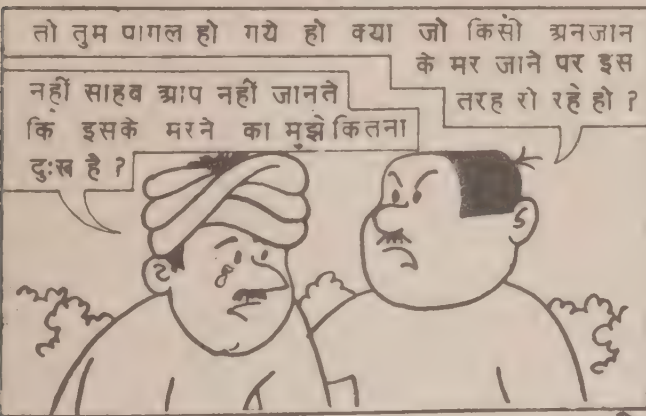 तो तुम पागल हो गये हो क्या जो किसी अनजान
के मर जाने पर इस
तरह रो रहे हो ?
नहीं साहब आप नहीं जानते
कि इसके मरने का मुझे कितना
दुःख है ?